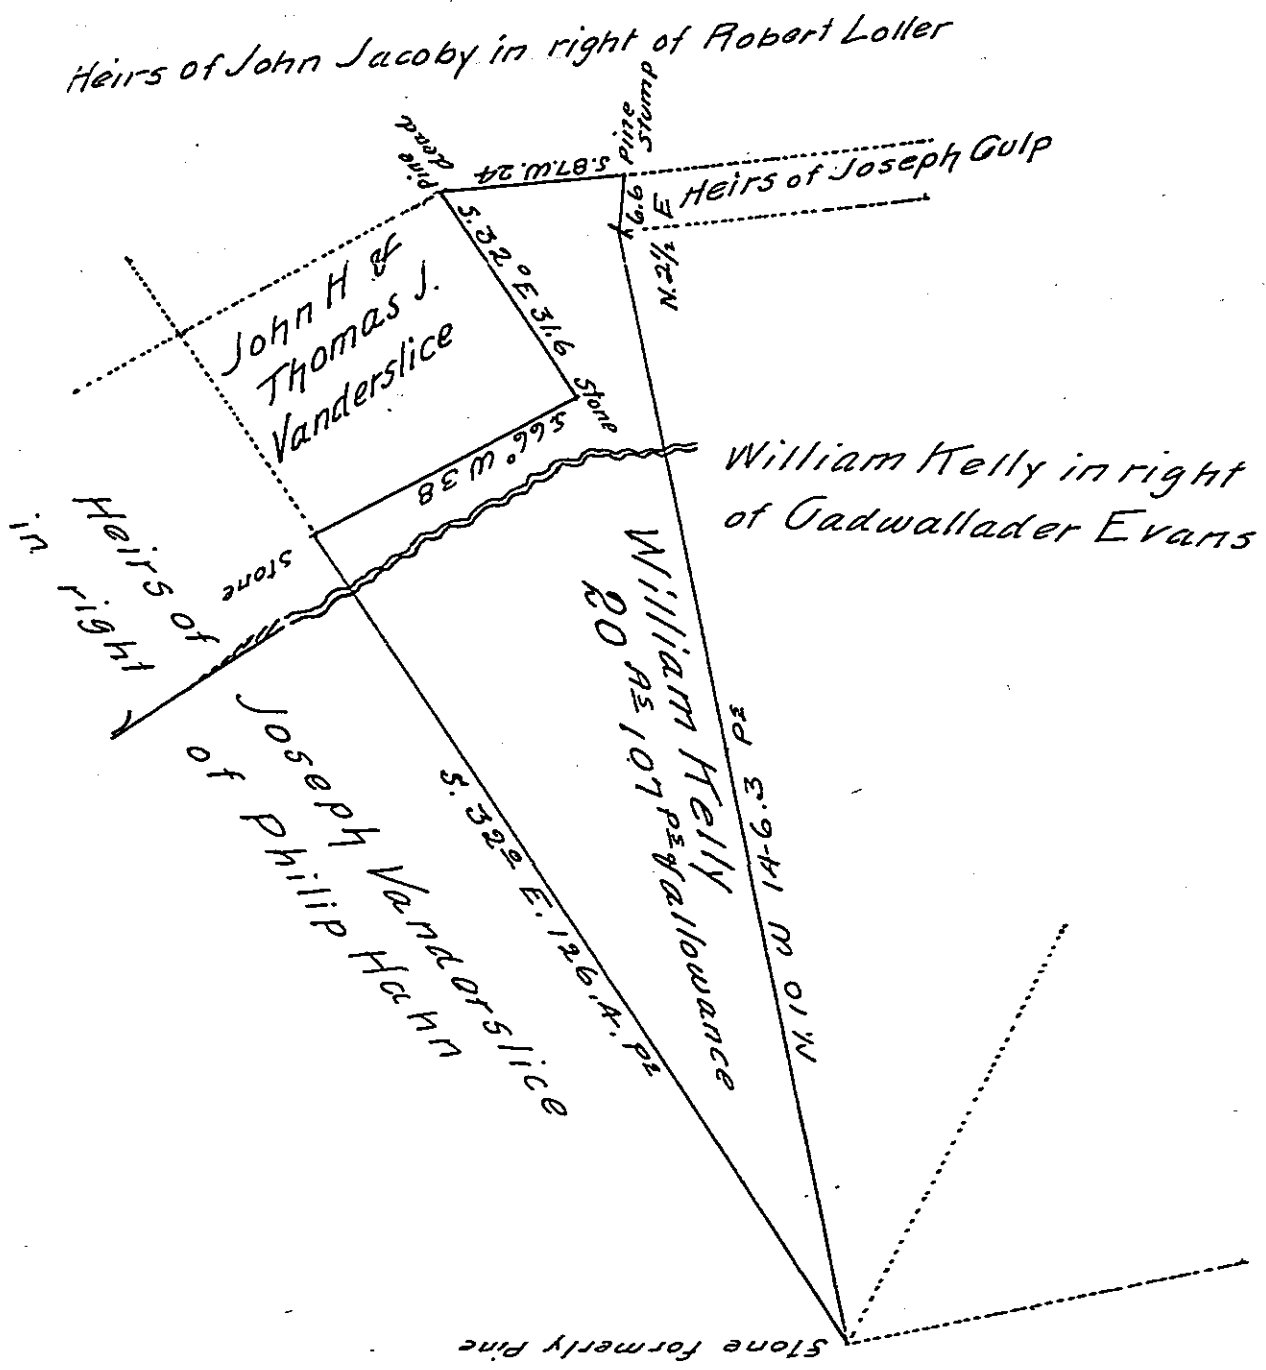 Heirs of John Jacoby in right of Robert Loller
Pine dead
S.87.W.24
Pine Stump
Heirs of Joseph Culp
N.2½ E 6.6
S.32° E 31.6
John H &
Thomas J.
Vanderslice
Stone
S.66° W 38
William Kelly in right
of Cadwallader Evans
Stone
Heirs of Joseph Vandorslice
in right of Philip Hahn
William Kelly
20 As 107 Ps & allowance
S. 32° E. 126.4. Ps
N. 10 W 146.3 Ps
Stone formerly Pine